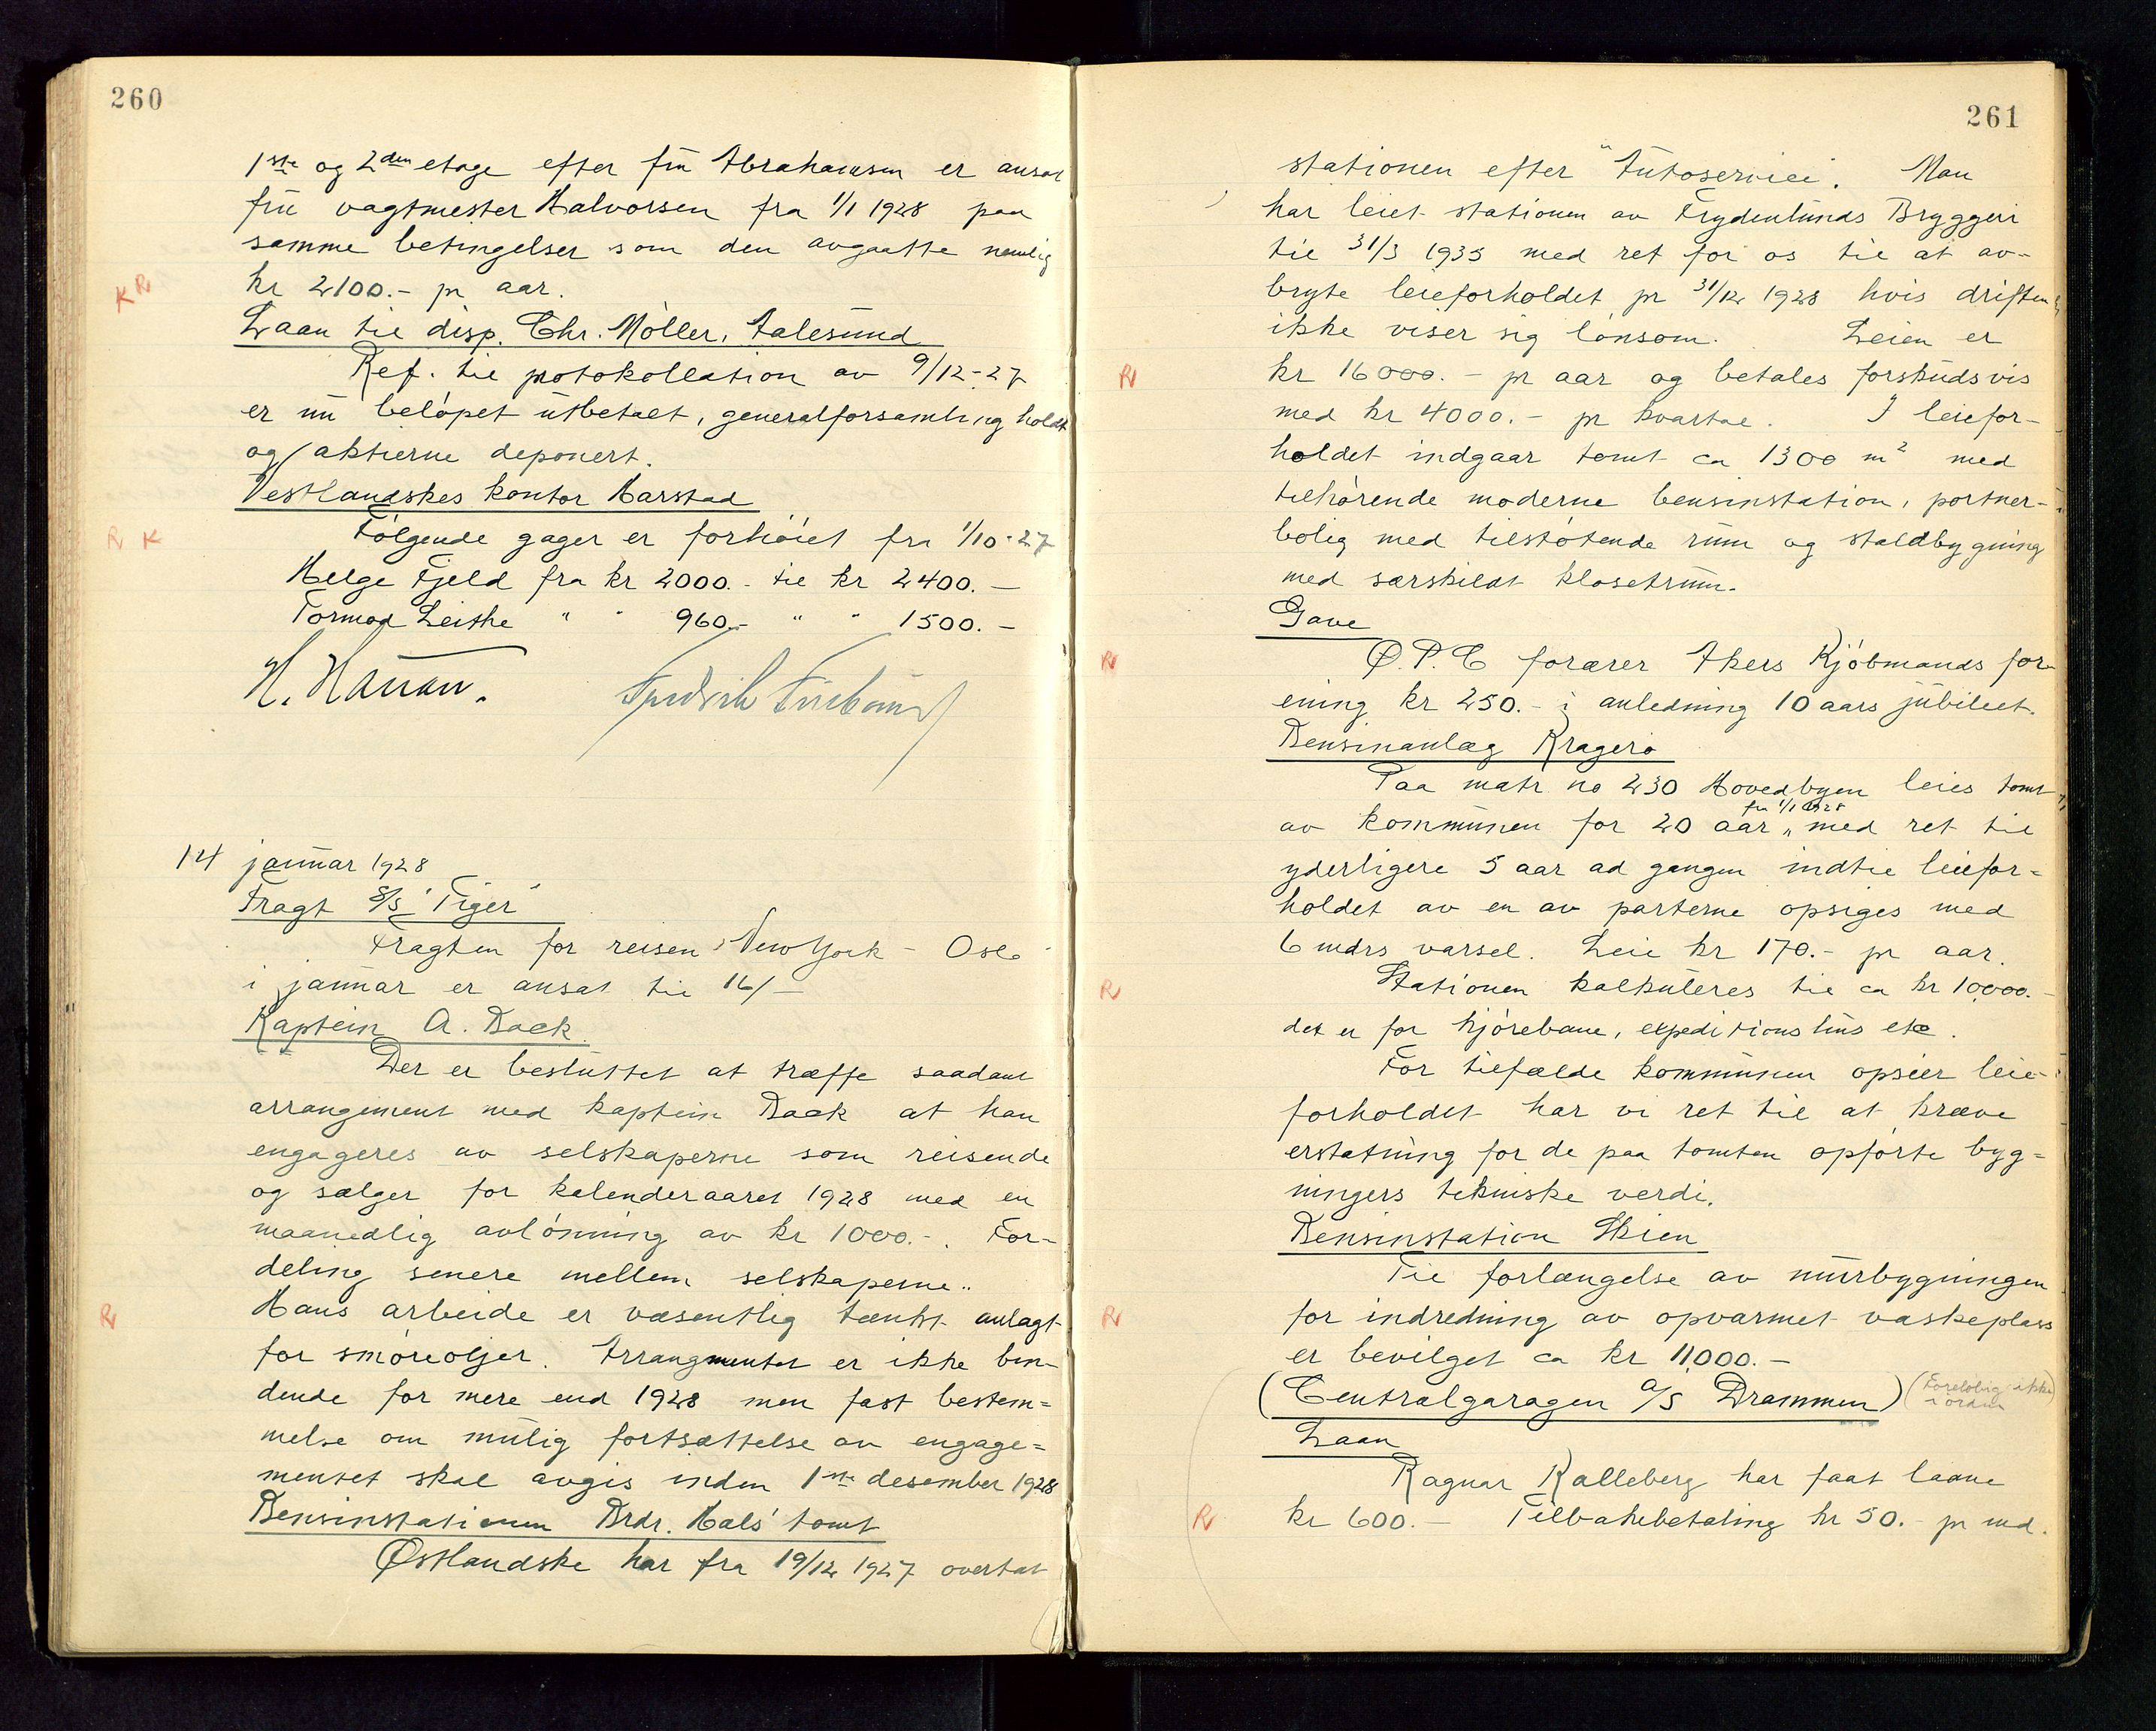 260
1ste og 2den etage efter frü Abrahamsen er ansat
frü vagtmester Halvorsen fra 1/1 1928 paa
samme betingelser som den avgaatte nemlig
K R
kr 2100.- pr aar.
Laan til disp. Chr. Møller, Aalesund
Ref. til protokollation av 9/12-27
er nu beløpet utbetalt, generalforsamling holdt
og aktierne deponert.
Vestlandskes kontor Harstad
R K
Følgende gager er forhøiet fra 1/10-27
Helge Fjeld fra kr 2000.- til kr 2400.-
Tormod Leithe " " 960.- " " 1500.-
14 januar 1928
Fragt S/S "Tiger"
Fragten for reisen New York - Oslo
i januar er ansat til 16/-
Kaptein A. Back
Der er besluttet at træffe saadant
arrangement med kaptein Back at han
engageres av selskaperne som reisende
og sælger for kalenderaaret 1928 med en
maanedlig avlønning av kr 1000.-. For-
deling senere mellem selskaperne.
R
Hans arbeide er væsentlig tænkt anlagt
for smøreoljer. Arrangmentet er ikke bin-
dende for mere end 1928 men fast bestem=
melse om mulig fortsættelse av engage=
mentet skal avgis inden 1ste desember 1928
Bensinstationen Brdr. Hals' tomt
Østlandske har fra 19/12 1927 overtat
261
stationen efter "Autoservice". Man
har leiet stationen av Frydenlunds Bryggeri
til 31/3 1935 med ret for os til at av-
bryte leieforholdet pr 31/12 1928 hvis driften
ikke viser sig lønsom. Leien er
R
kr 16000.- pr aar og betales forskudsvis
med kr 4000.- pr kvartal. I leiefor-
holdet indgaar tomt ca 1300 m2 med
tilhørende moderne bensinstation, portner-
bolig med tilstøtende rum og staldbygning
med særskildt klosetrum.
Gave
R
Ø.P.C forærer Akers Kjøbmands for-
ening kr 250.- i anledning 10 aars jubileet.
Bensinanlæg Kragerø
Paa matr no 230 Hovedbyen leies tomt
fra 1/1 1928
av kommunen for 20 aar, med ret til
yderligere 5 aar ad gangen indtil leiefor=
holdet av en av parterne opsiges med
6 mdrs varsel. Leie kr 170.- pr aar.
R
Stationen kalkuleres til ca kr 10000.-
det er for kjørebane, expeditionshus etc.
For tilfælde kommunen opsier leie-
forholdet har vi ret til at kræve
erstatning for de paa tomten opførte byg=
ningers tekniske verdi.
Bensinstation Skien
Til forlængelse av murbygningen
R
for indredning av opvarmet vaskeplass
er bevilget ca kr 11,000.-
(Centralgaragen A/S Drammen) (Foreløbig ikke
i orden)
Laan
Ragnar Kalleberg har faat laane
R
kr 600.- Tilbakebetaling kr 50.- pr md.